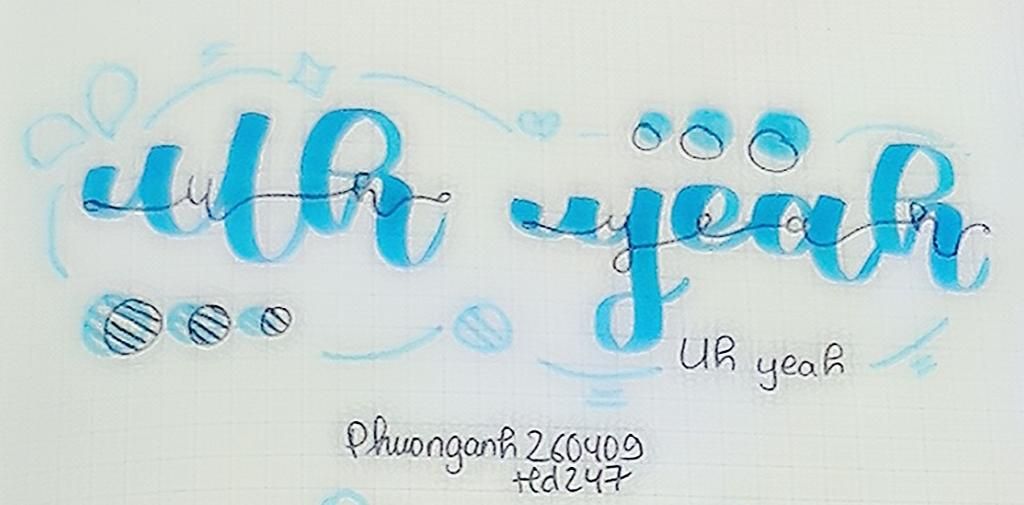 uh yeah
uh yeah
Uh yeah
Phuonganh 260409
ted247